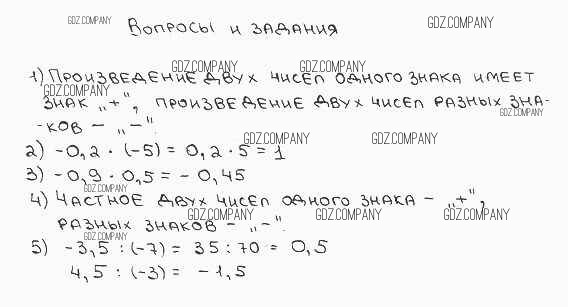 GDZ.COMPANY
Вопросы и задания
GDZ.COMPANY
GDZ.COMPANY GDZ.COMPANY
1) Произведение двух чисел одного знака имеет
GDZ.COMPANY
знак „+", произведение двух чисел разных зна-
GDZ.COMPANY
-ков – „–".
GDZ.COMPANY GDZ.COMPANY
2) -0,2 · (-5) = 0,2 · 5 = 1
3) -0,9 · 0,5 = - 0,45
GDZ.COMPANY
4) Частное двух чисел одного знака – „+",
GDZ.COMPANY GDZ.COMPANY GDZ.COMPANY
разных знаков – „–".
GDZ.COMPANY
5) -3,5 : (-7) = 35 : 70 = 0,5
4,5 : (-3) = -1,5